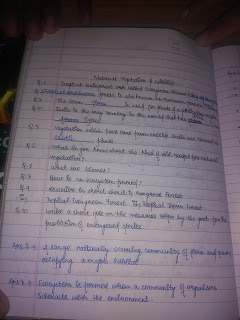 Natural Vegetation & Wildlife
Q.1 Tropical rainforest are called Evergreen because
Q.2 Tropical deciduous forest is also known as monsoon
Q.3 The term flora is used for plants of a
Q.4 India is the only country in the world that has
Q.5 Vegetation which have been from outside India are termed as
plants
Q.6 What do you know about the kind of soil needed for natural
vegetation?
Q.7 What are biomes?
Q.8 How is an Ecosystem formed?
Q.9 in short about 1) Mangrove Forest
Tropical Evergreen Forest Tropical Thorn Forest
Q.10 Write a short note on the measures taken by the govt. for the
protection of endangered species.
Ans.7→ A large naturally occurring community of flora and fauna
occupying a major habitat.
Ans.8→ Ecosystem is formed when a community of organisms
interacts with the environment.